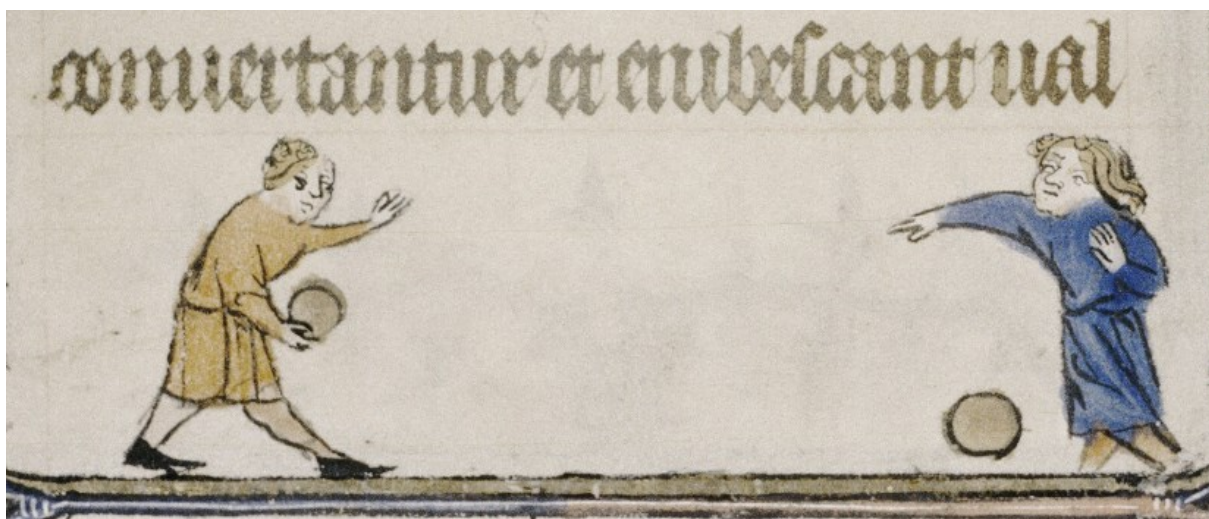 convertantur et erubescant ual